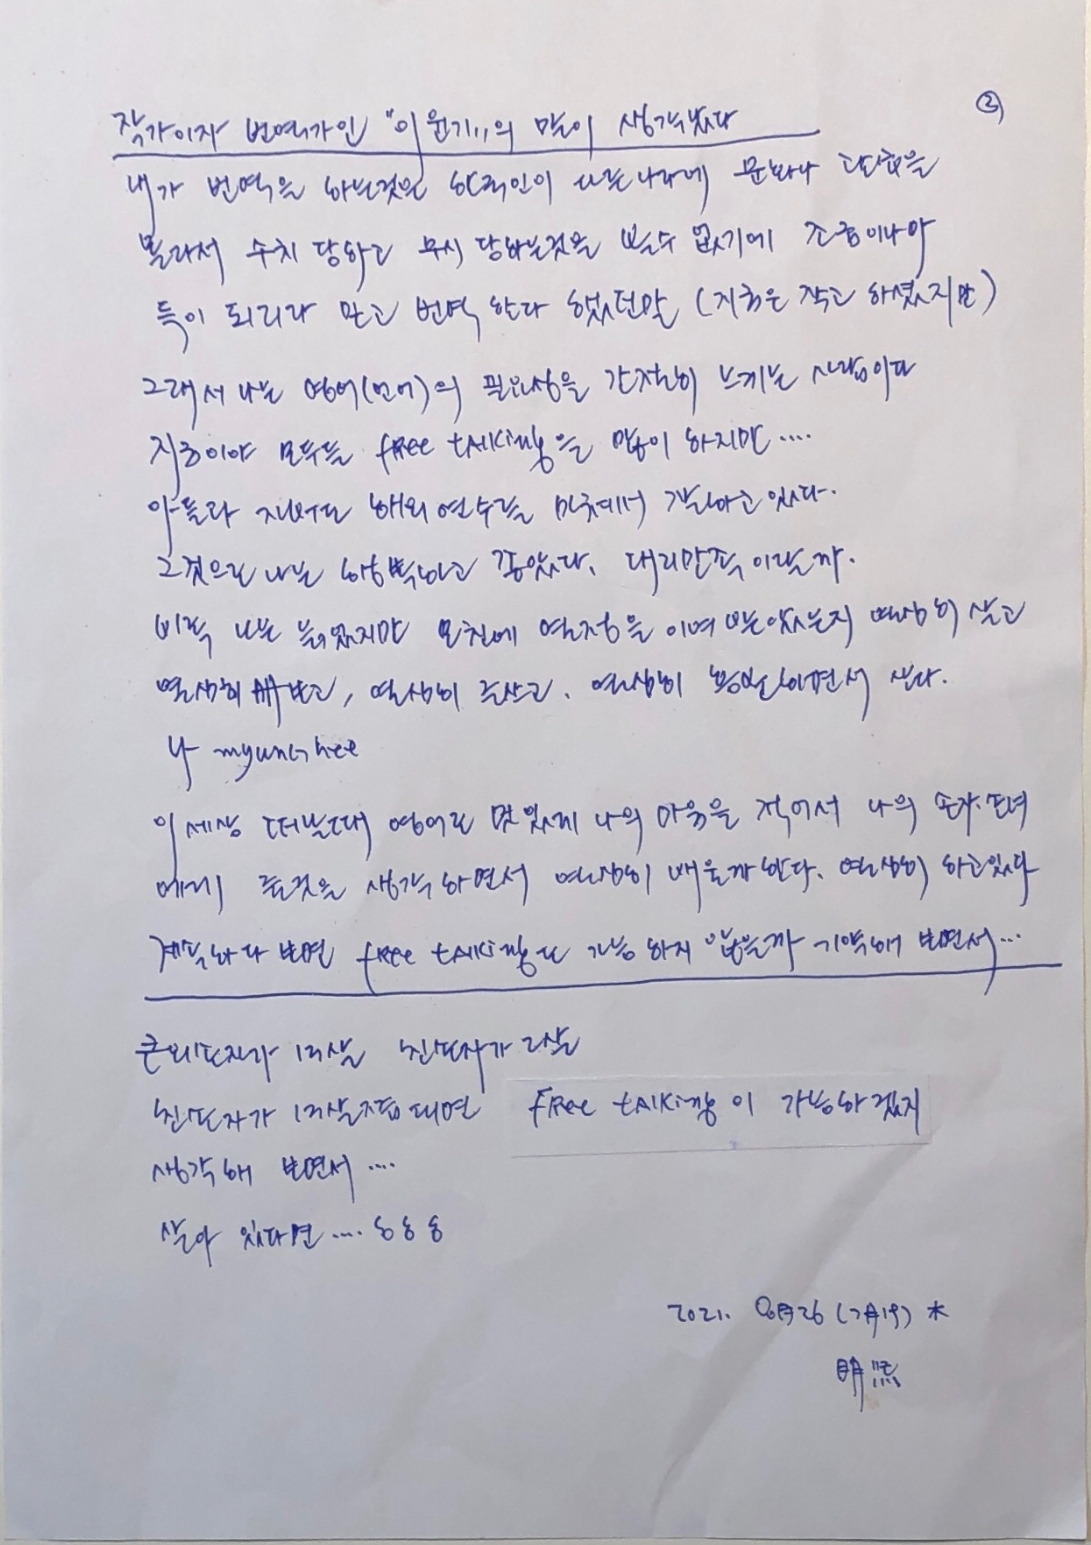 ②
작가이자 번역가인 "이윤기"의 말이 생각났다
내가 번역을 하는것은 한국인이 다른나라에 문화나 관습을
몰라서 수치 당하고 무시 당하는것을 볼수 없기에 조금이나마
득이 되리라 믿고 번역 한다 했었던말 (지금은 작고 하셨지만)
그래서 나는 영어(언어)의 필요성을 간절히 느끼는 사람이다
지금이야 모두들 free talking을 많이 하지만····
아들과 해외연수를 하고있다.
그것으로 나는 행복하고 좋았다. 대리만족 이랄까.
비록 나는 늙었지만 모친에 열정을 이여 받았는지 열심히 살고
열심히 보고, 열심히 , 열심히 하면서 산다.
나 myunghee
이세상 떠날때 영어로 멋있게 나의 마음을 적어서 나의 손자.손녀
에게 줄것을 생각 하면서 열심히 배울까한다. 열심히 하고있다
계속하다 보면 free talking도 가능 하지 않을까 기약해 보면서···
큰외손자가 13살 친손자가 2살
친손자가 13살쯤되면 free talking이 가능하겠지
생각해 보면서 ····
살아 있다면 ···· ㅎㅎㅎ
2021. 月26 (月19) 水
明熙